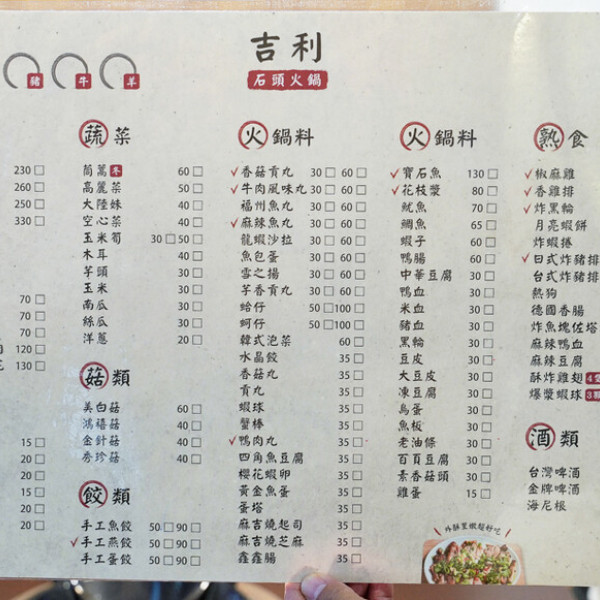 吉利
石頭火鍋
豬 牛 羊
230
260
250
330
70
70
70
120
130
15
20
20
15
20
20
蔬菜
茼蒿 冬 60
高麗菜 50
大陸妹 40
空心菜 40
玉米筍 30 50
木耳 40
芋頭 30
玉米 30
南瓜 30
絲瓜 30
洋蔥 20
菇類
美白菇 60
鴻禧菇 40
金針菇 40
秀珍菇 40
餃類
手工魚餃 50 90
手工燕餃 50 90
手工蛋餃 50 90
火鍋料
香菇貢丸 30 60
牛肉風味丸 30 60
福州魚丸 30 60
麻辣魚丸 30 60
龍蝦沙拉 30 60
魚包蛋 30 60
雪之揚 30 60
芋香貢丸 30 60
蛤仔 50 100
蚵仔 50 100
韓式泡菜 60
水晶餃 35
香菇丸 35
貢丸 35
蝦球 35
蟹棒 35
鴨肉丸 35
四角魚豆腐 35
櫻花蝦卵 35
黃金魚蛋 35
蛋塔 35
麻吉燒起司 35
麻吉燒芝麻 35
鑫鑫腸 35
火鍋料
寶石魚 130
花枝漿 80
魷魚 70
鯛魚 65
蝦子 60
鴨腸 60
中華豆腐 30
鴨血 30
米血 30
豬血 30
黑輪 30
豆皮 30
大豆皮 30
凍豆腐 30
鳥蛋 30
魚板 30
老油條 30
百頁豆腐 30
素香菇頭 30
雞蛋 15
外酥里嫩超好吃
熟食
椒麻雞
香雞排
炸黑輪
月亮蝦餅
炸蝦捲
日式炸豬排
台式炸豬排
熱狗
德國香腸
炸魚塊佐塔
麻辣鴨血
麻辣豆腐
酥炸雞翅
爆漿蝦球
酒類
台灣啤酒
金牌啤酒
海尼根